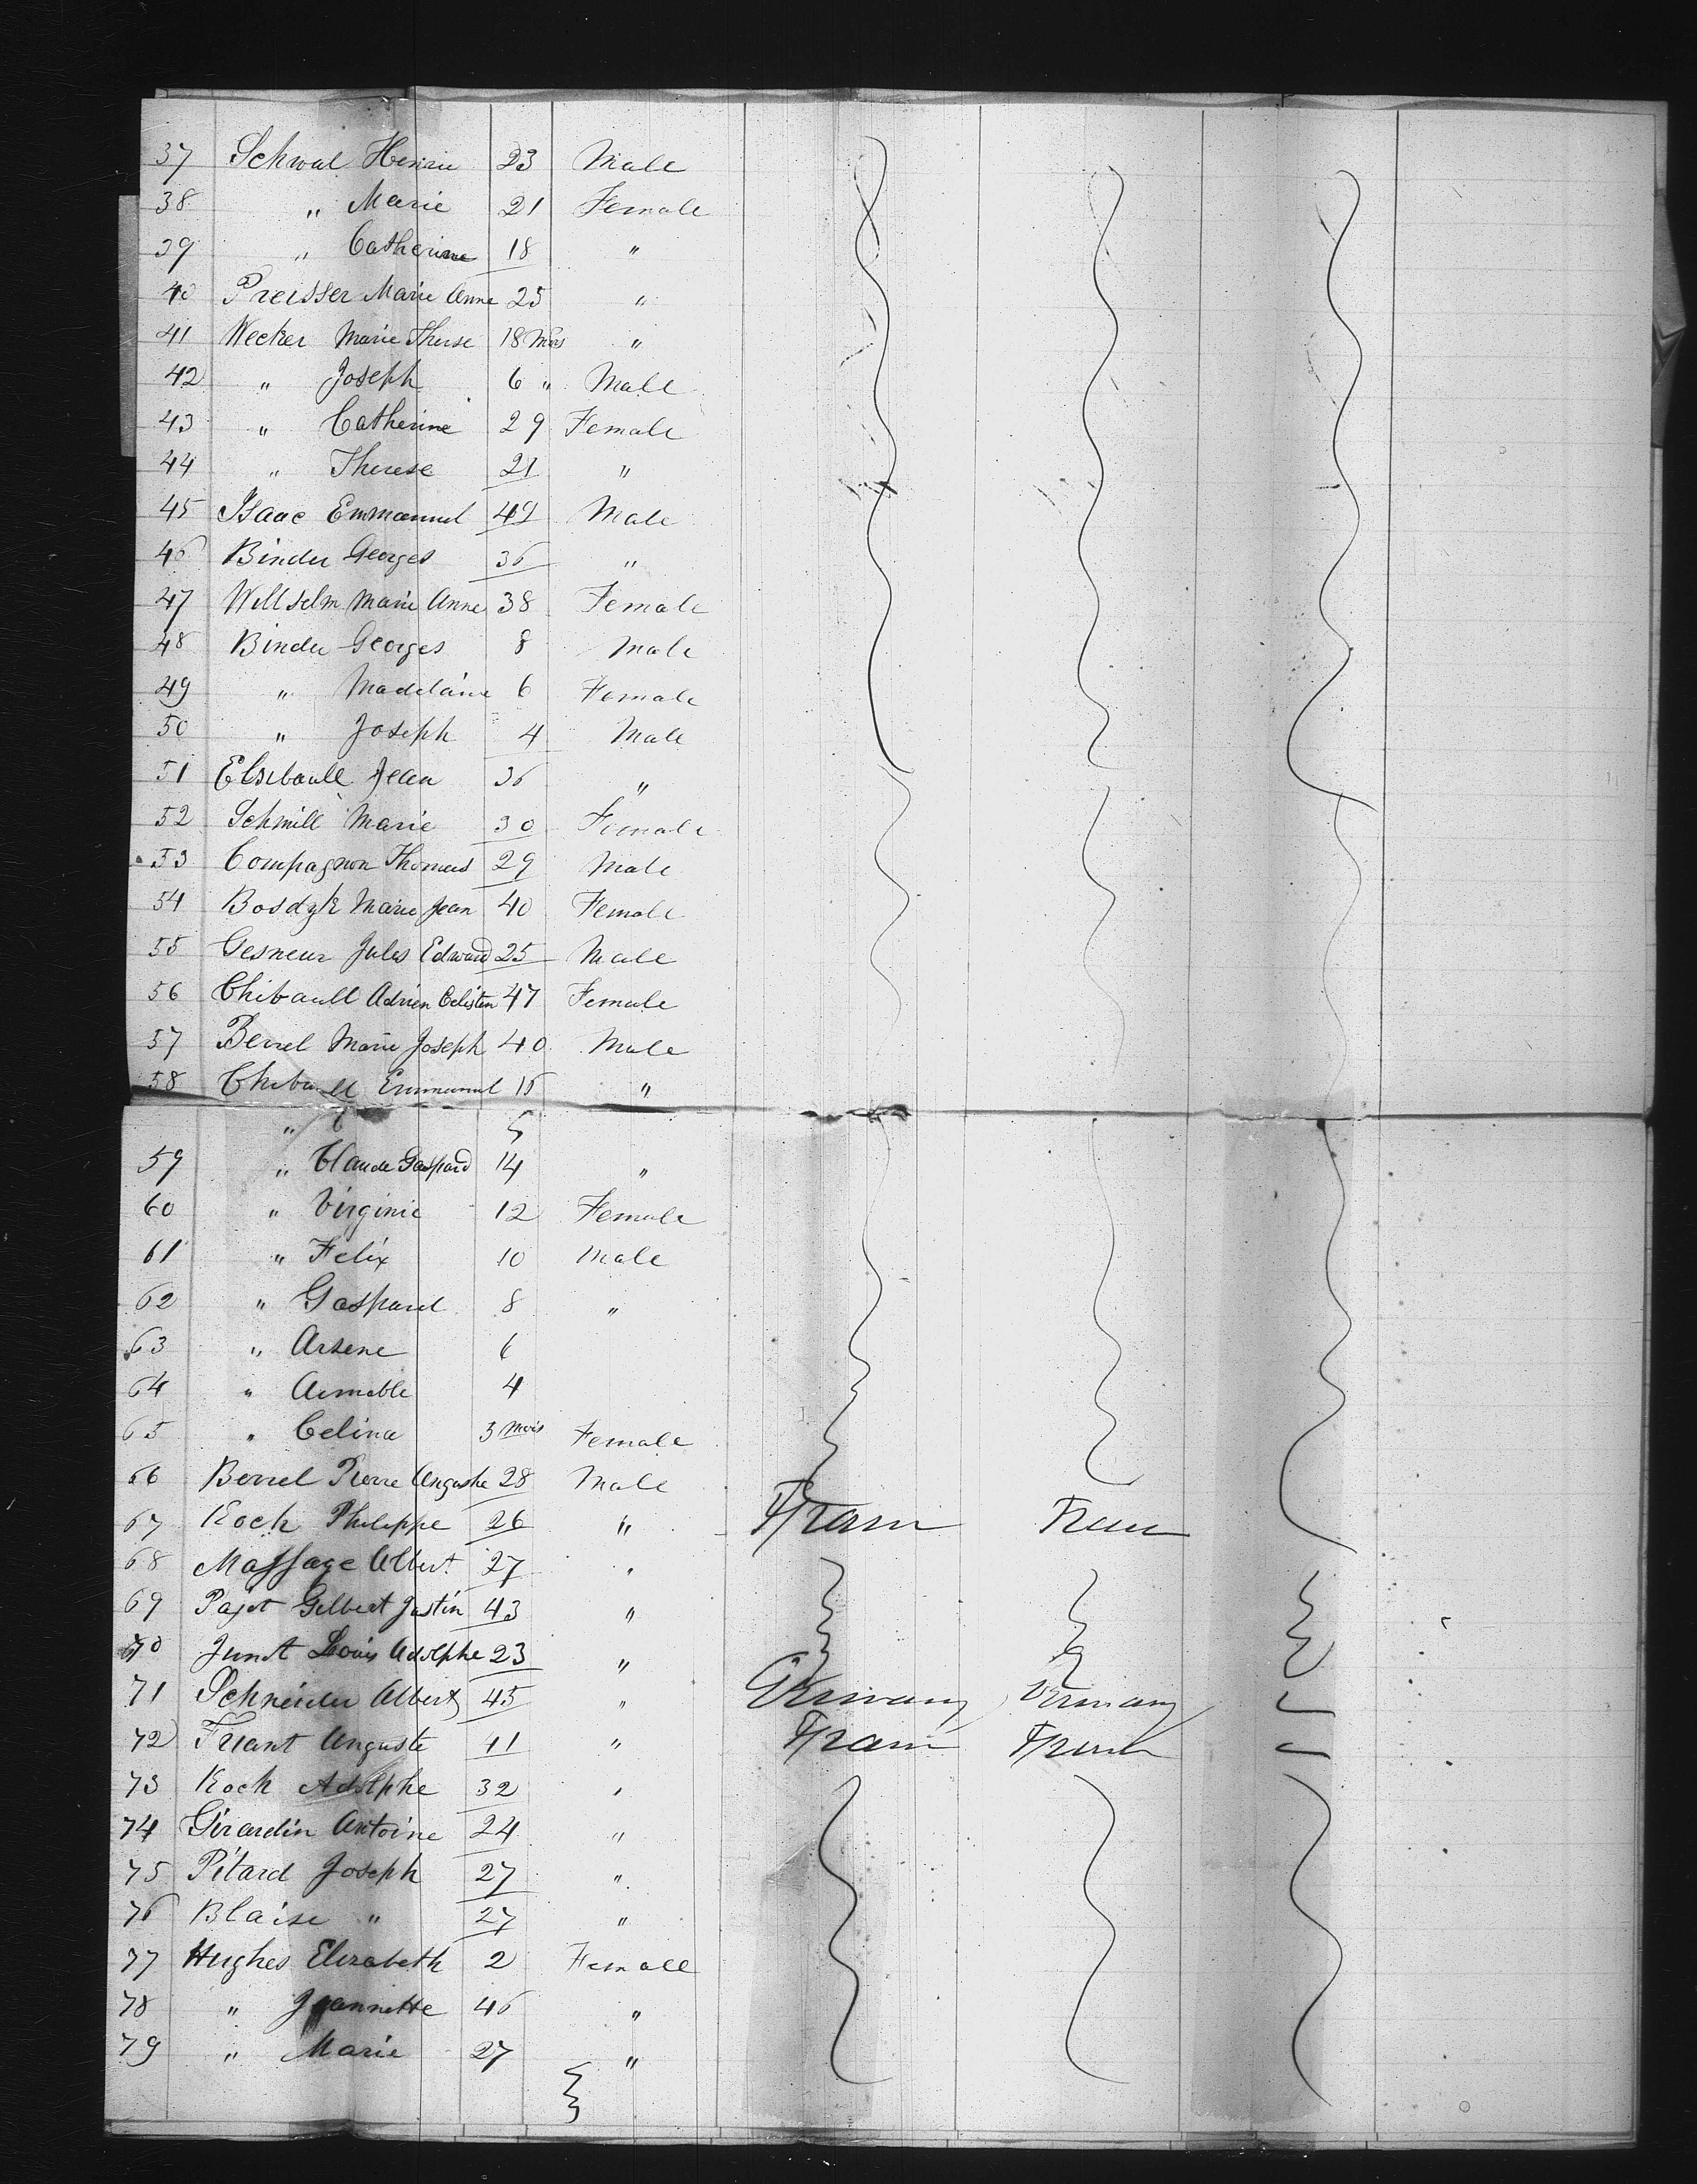 37 Schwal Henrie 23 Male
38 " Marie 21 Female
39 " Catherine 18 "
40 Preisser Marie Anne 25 "
41 Wecker Marie Therse 18 Mois "
42 " Joseph 6 " Male
43 " Catherine 29 Female
44 " Therese 21 "
45 Isaac Emmanuel 49 Male
46 Binder Georges 36 "
47 Willselm Marie Anne 38 Female
48 Binder Georges 8 Male
49 " Madelaine 6 Female
50 " Joseph 4 Male
51 Elsibaull Jean 36 "
52 Schmill Marie 30 Female
53 Compagnon Thomas 29 Male
54 Bosdyk Marie Jean 40 Female
55 Gesneur Jules Edward 25 Male
56 Thibaull Adrien Celisten 47 Female
57 Berrel Marie Joseph 40 Male
58 Thibaull Emmanuel 15 "
"
59 " Claude Gaspard 14 "
60 " Virginie 12 Female
61 " Felix 10 Male
62 " Gaspard 8 "
63 " Arsene 6
64 " Aimable 4
65 " Celina 3 Mois Female
66 Berrel Pierre Auguste 28 Male
67 Koch Philippe 26 " Fran Fran
68 Massage Albert 27 "
69 Pajot Gilbert Justin 43 "
70 Junt Louis Adolphe 23 "
71 Schneider Albert 45 " Germany Germany
72 Friant Auguste 41 " Fran Fran
73 Koch Adolphe 32 "
74 Girardin Antoine 24 "
75 Pitard Joseph 27 "
76 Blaise " 27 "
77 Hughes Elizabeth 2 Female
78 " Jeannette 46 "
79 " Marie 27 "